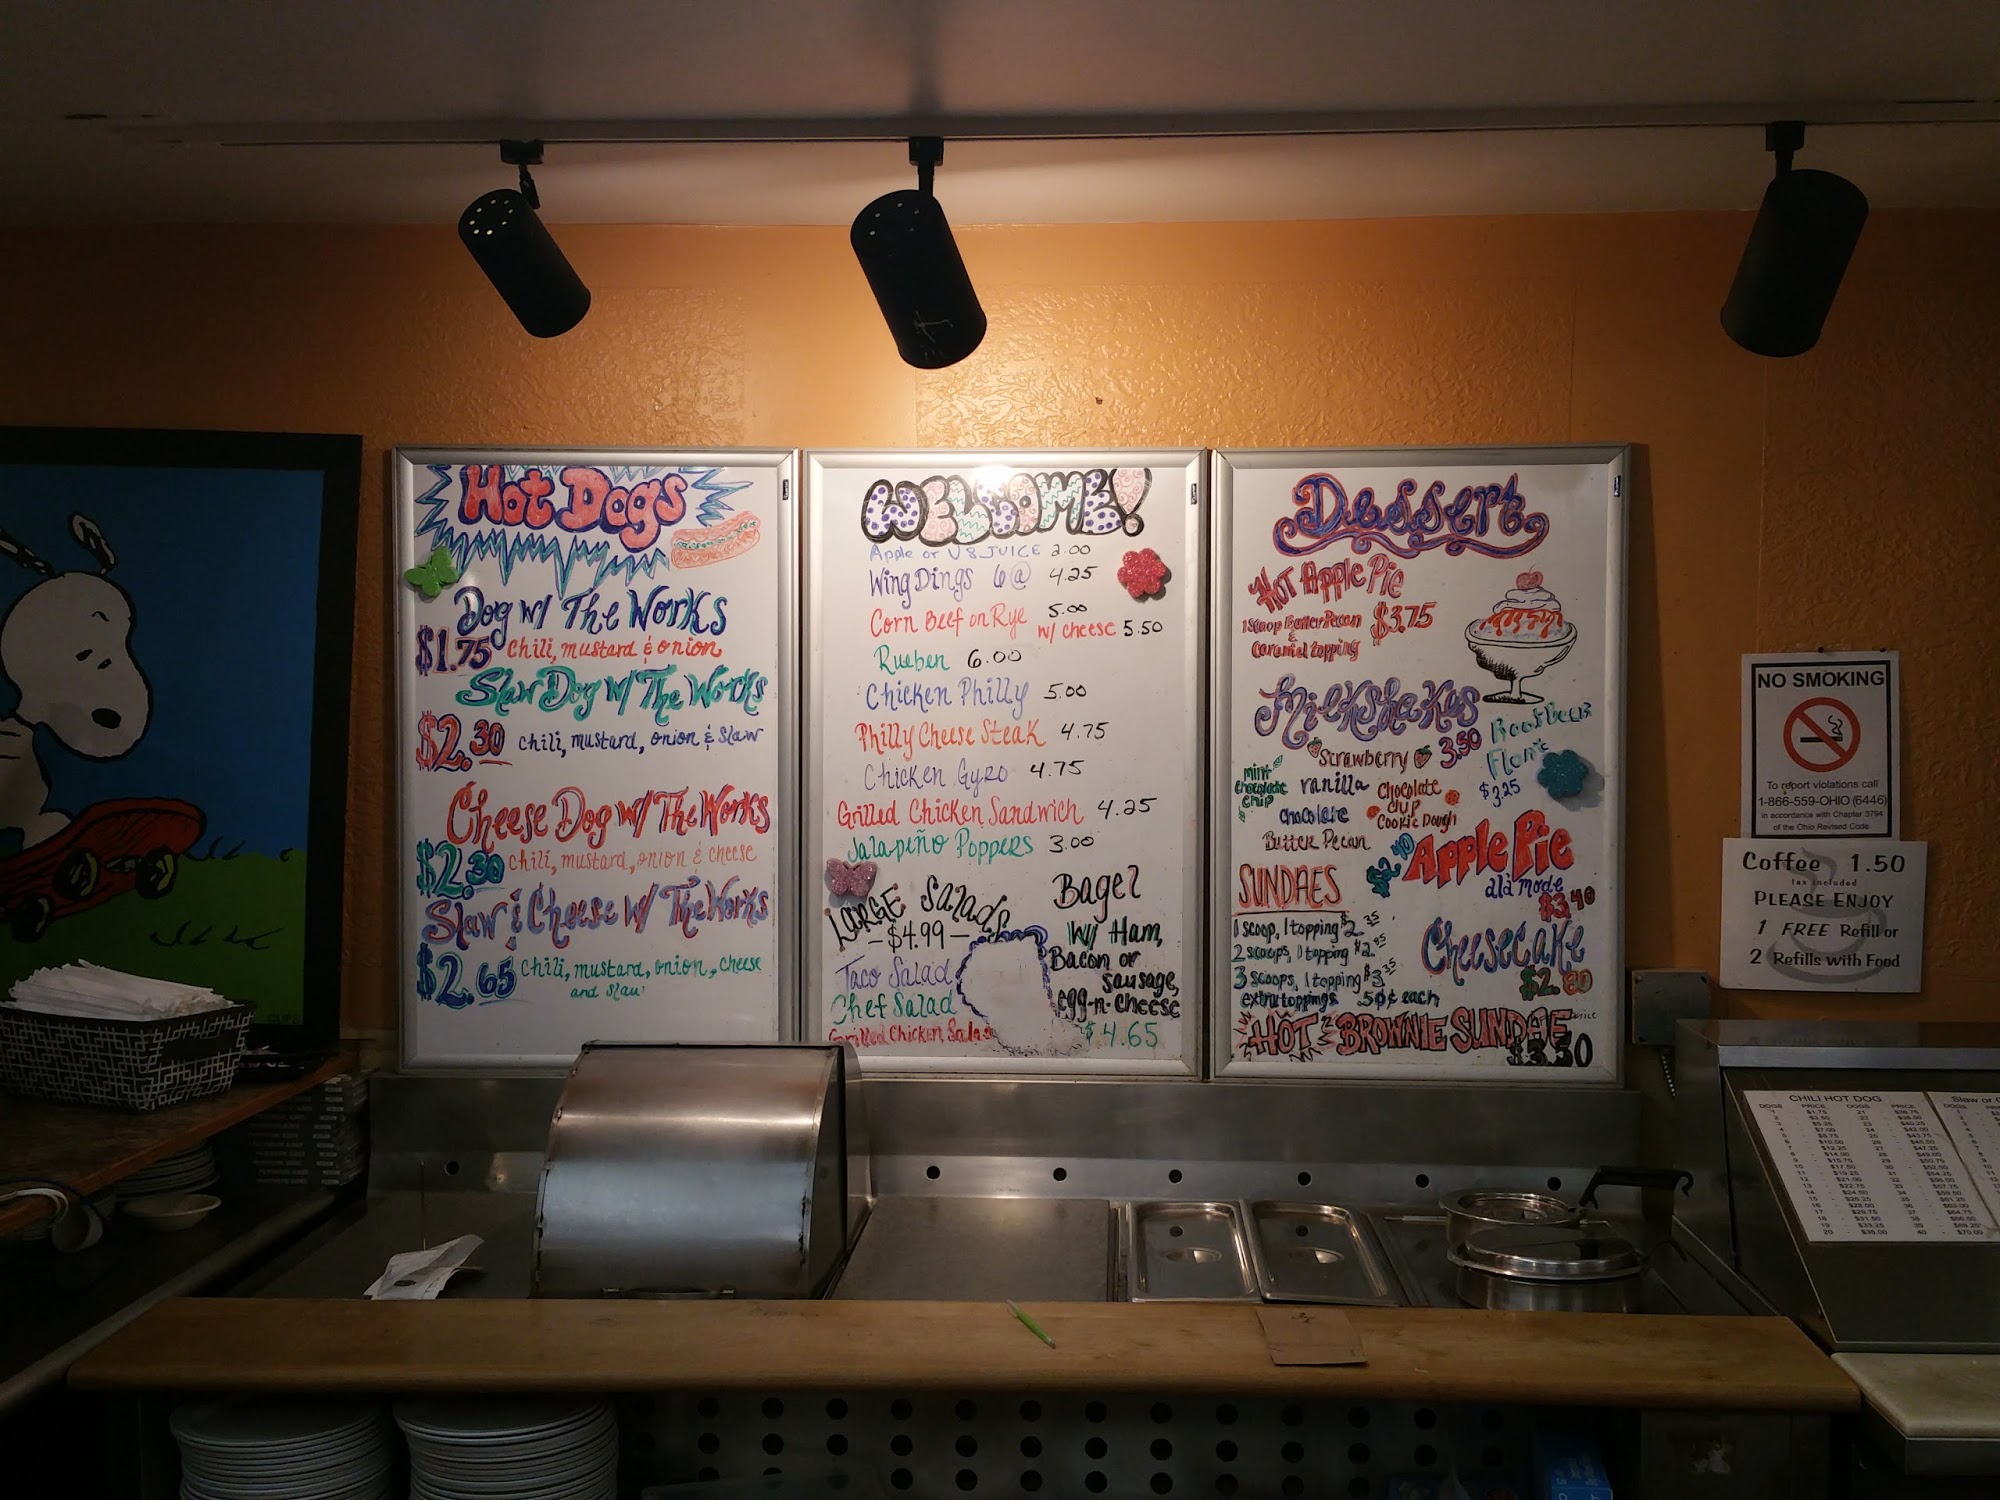 Hot Dogs
Dog w/ The Works
$1.75 chili, mustard & onion
Slaw Dog w/ The Works
$2.30 chili, mustard, onion & slaw
Cheese Dog w/ The Works
$2.30 chili, mustard, onion & cheese
Slaw & Cheese w/ The Works
$2.65 chili, mustard, onion, cheese
and slaw
WELCOME!
Apple or V8 JUICE 2.00
Wing Dings 6@ 4.25
Corn Beef on Rye 5.00
w/ cheese 5.50
Rueben 6.00
Chicken Philly 5.00
Philly Cheese Steak 4.75
Chicken Gyro 4.75
Grilled Chicken Sandwich 4.25
Jalapeño Poppers 3.00
LARGE Salads
-$4.99-
Taco Salad
Chef Salad
Grilled Chicken Salad
Bagel
w/ Ham,
Bacon or
sausage,
egg-n-cheese
$4.65
Dessert
HOT Apple Pie
1 scoop Butter Pecan
&
caramel topping
$3.75
Milkshakes
3.50
Strawberry
mint
chocolate
chip
vanilla
chocolate
Chocolate
chip
Cookie Dough
Butter Pecan
Root Beer
Float
$3.25
Apple Pie
$2.40
alà mode
$3.40
SUNDAES
1 scoop, 1 topping $2.35
2 scoops, 1 topping $2.85
3 scoops, 1 topping $3.35
extra toppings 50¢ each
Cheesecake
$2.80
HOT BROWNIE SUNDAE
$3.30
NO SMOKING
To report violations call
1-866-559-OHIO (6446)
in accordance with Chapter 3794
of the Ohio Revised Code
Coffee 1.50
tax included
PLEASE ENJOY
1 FREE Refill or
2 Refills with Food
CHILI HOT DOG
DOGS PRICE DOGS PRICE
Slaw or